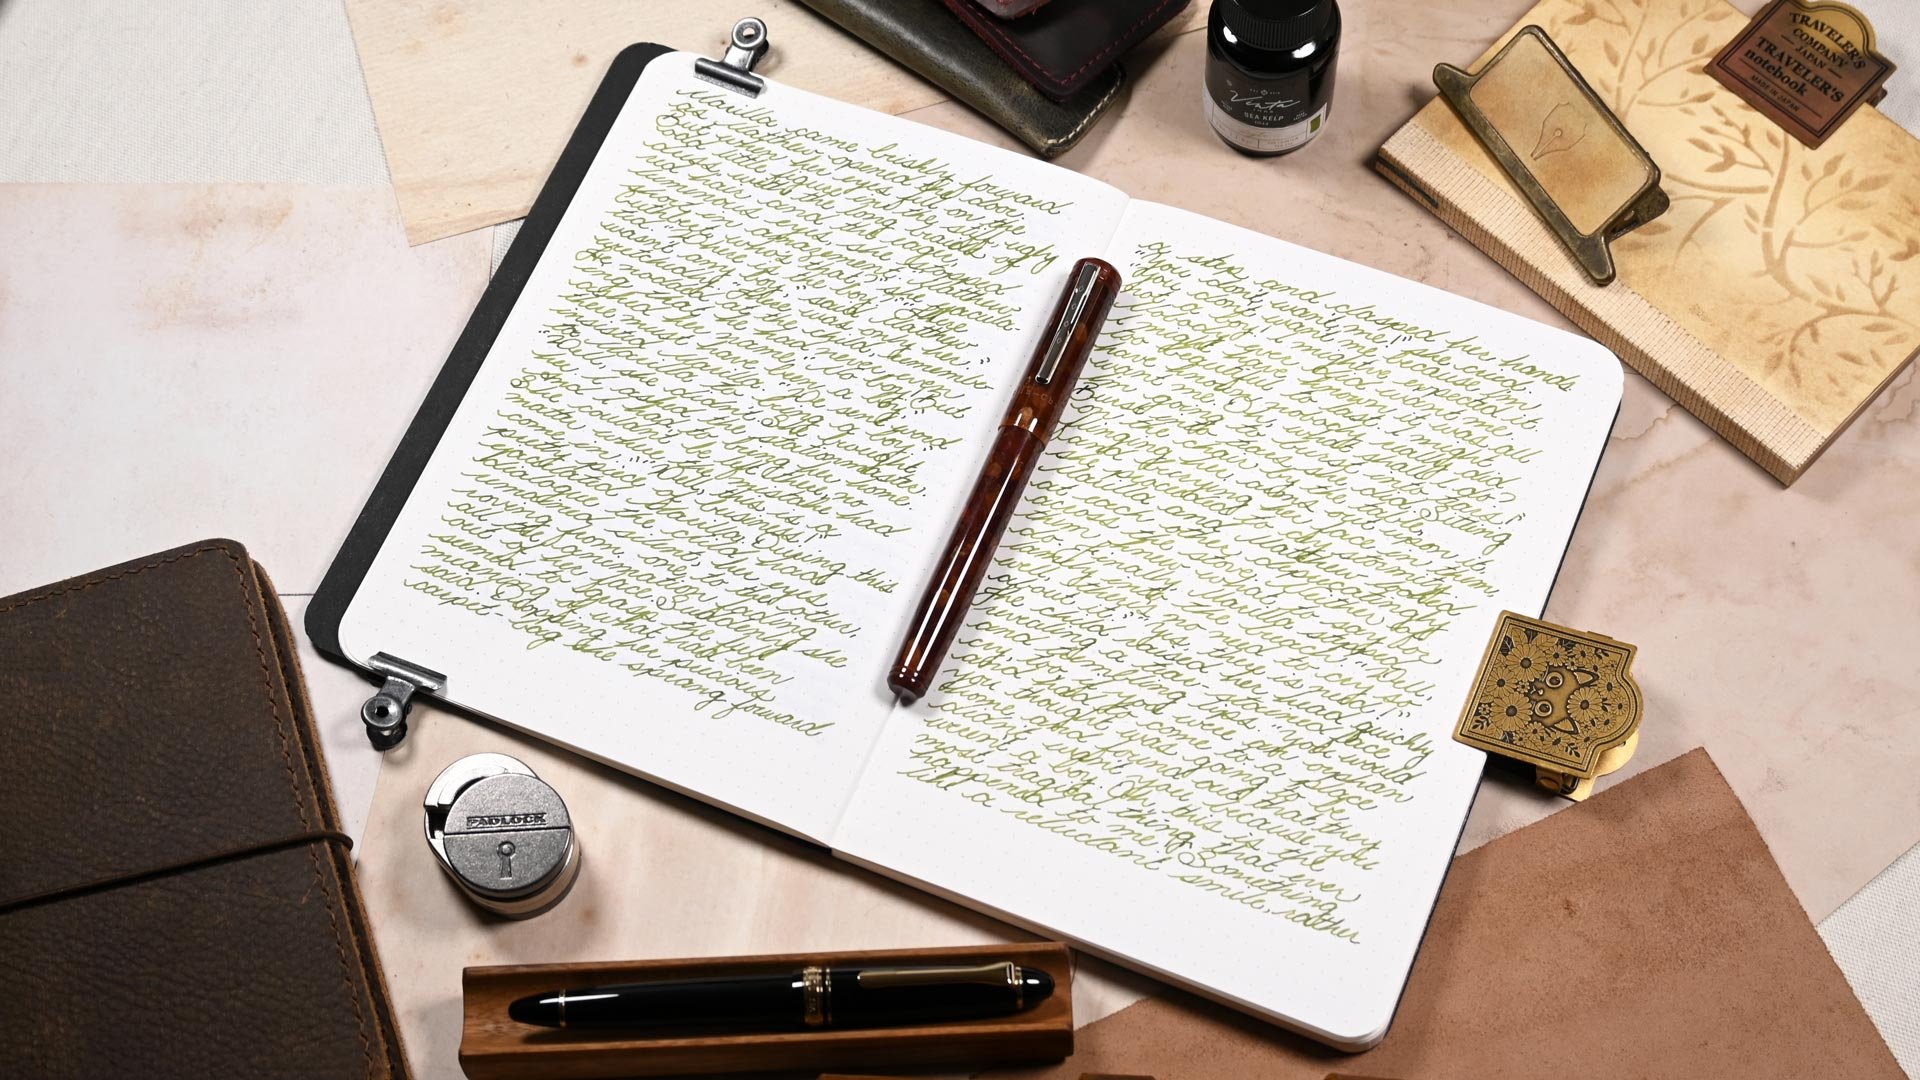 Marilla came briskly forward
as Matthew opened the door.
But when her eyes fell on the
odd little figure in the stiff, ugly
dress, with the long braids of
red hair and the eager,
luminous eyes, she stopped
short in amazement. "Matthew
Cuthbert, who's that?" she ejacula-
ted. "Where is the boy?" "There
wasn't any boy," said Matthew
wretchedly. "There was only her."
He nodded at the child, remembe-
ring that he had never even
asked her name. "No boy! But
there must have been a boy,"
insisted Marilla. "We sent word
to Mrs. Spencer to bring a boy."
"Well, we didn't. I brought
her. I asked the stationmaster.
And I had to bring her home.
She couldn't be left there, no
matter where the mistake had
come in." "Well, this is a
pretty piece of business!"
ejaculated Marilla. During this
dialogue the child had
remained silent, her eyes
roving from one to the other,
all the animation fading
out of her face. Suddenly she
seemed to grasp the full
meaning of what had been
said. Dropping her precious
carpet-bag she sprang forward
a step and clasped her hands
"You don't want me!" she cried.
"You don't want me because I'm
not a boy! I might have expected it.
Nobody ever did want me. I
might have known it was all
too beautiful to last. I might
have known nobody really did
want me. Oh, what shall I do?
I'm going to burst into tears!"
Burst into tears she did. Sitting
down on a chair by the table,
flinging her arms out upon it,
and burying her face in them,
she proceeded to cry stormily.
Marilla and Matthew looked
at each other deprecatingly
across the stove. Neither of
them knew what to say or do.
Finally Marilla stepped
lamely into the breach. "Well,
well, there's no need to cry so
about it." "Yes, there is need!"
The child raised her head quickly
revealing a tear-stained face
and trembling lips. "You would
cry, too, if you were an orphan
and had come to a place
you thought was going to be
home and found that they
didn't want you because you
weren't a boy. Oh, this is the
most tragical thing that ever
happened to me!" Something
like a reluctant smile, rather
Vinta
SEA KELP
TRAVELER'S
COMPANY
JAPAN
TRAVELER'S
notebook
MADE IN JAPAN
PADLOCK